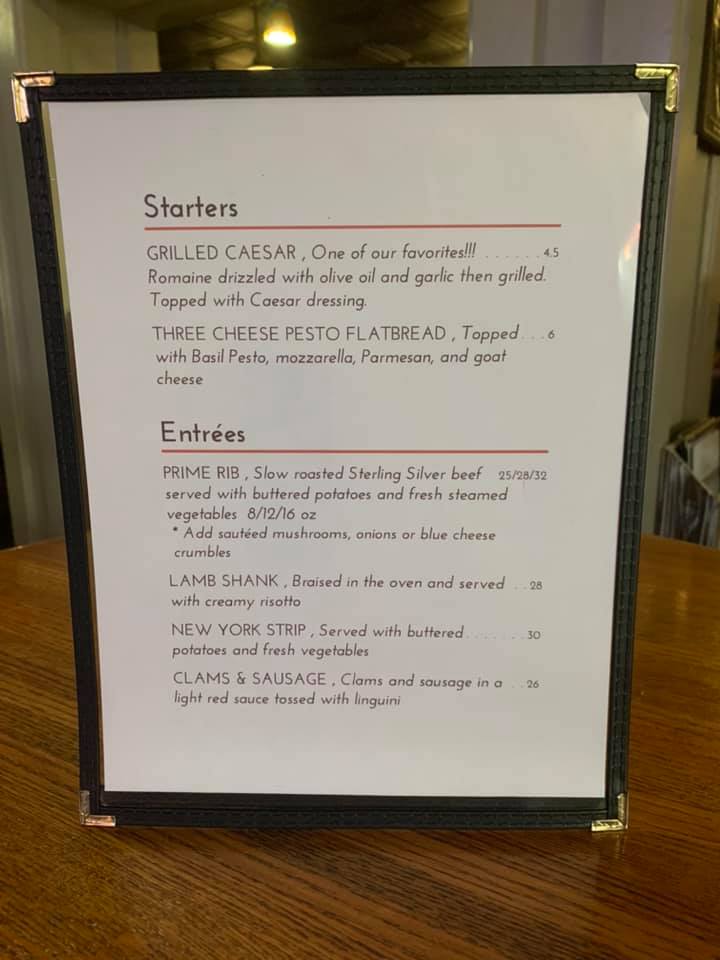 Starters
GRILLED CAESAR , One of our favorites!!! . . . . . . 4.5
Romaine drizzled with olive oil and garlic then grilled.
Topped with Caesar dressing.
THREE CHEESE PESTO FLATBREAD , Topped . . . 6
with Basil Pesto, mozzarella, Parmesan, and goat
cheese
Entrées
PRIME RIB , Slow roasted Sterling Silver beef 25/28/32
served with buttered potatoes and fresh steamed
vegetables 8/12/16 oz
* Add sautéed mushrooms, onions or blue cheese
crumbles
LAMB SHANK , Braised in the oven and served . . 28
with creamy risotto
NEW YORK STRIP , Served with buttered . . . . . . . 30
potatoes and fresh vegetables
CLAMS & SAUSAGE , Clams and sausage in a . . 26
light red sauce tossed with linguini